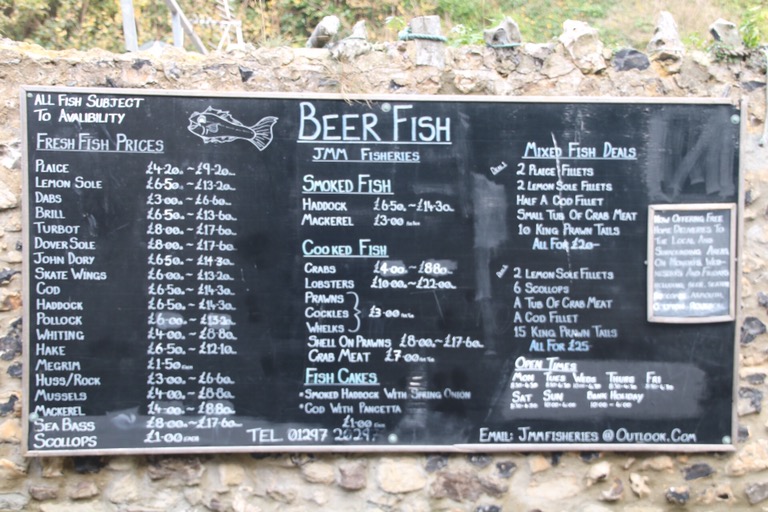 ALL FISH SUBJECT
TO AVALIBILITY
FRESH FISH PRICES
PLAICE £4.20. ~ £9.20
LEMON SOLE £6.50. ~ £13.20
DABS £3.00 ~ £6.60
BRILL £6.50. ~ £13.60
TURBOT £8.00 ~ £17.60
DOVER SOLE £8.00 ~ £17.60
JOHN DORY £6.50 ~ £14.30
SKATE WINGS £6.00 ~ £13.20
COD £6.50 ~ £14.30
HADDOCK £6.50 ~ £14.30
POLLOCK £6.00 ~ £13.20
WHITING £4.00 ~ £8.80
HAKE £6.50 ~ £12.10
MEGRIM £1.50
HUSS/ROCK £3.00 ~ £6.60
MUSSELS £4.00 ~ £8.80
MACKEREL £4.00 ~ £8.80
SEA BASS £8.00 ~ £17.60
SCOLLOPS £1.00 EACH
BEER FISH
JMM FISHERIES
SMOKED FISH
HADDOCK £6.50. ~ £14.30
MACKEREL £3.00
COOKED FISH
CRABS £4.00 ~ £8.80
LOBSTERS £10.00 ~ £22.00
PRAWNS
COCKLES £3.00
WHELKS
SHELL ON PRAWNS £8.00 ~ £17.60
CRAB MEAT £7.00
FISH CAKES
* SMOKED HADDOCK WITH SPRING ONION
* COD WITH PANCETTA
£1.00
TEL 01297
MIXED FISH DEALS
2 PLAICE FILLETS
2 LEMON SOLE FILLETS
HALF A COD FILLET
SMALL TUB OF CRAB MEAT
10 KING PRAWN TAILS
ALL FOR £20
2 LEMON SOLE FILLETS
6 SCOLLOPS
A TUB OF CRAB MEAT
A COD FILLET
15 KING PRAWN TAILS
ALL FOR £25
OPEN TIMES
MON TUES WEDS THURS FRI
SAT SUN BANK HOLIDAY
EMAIL: JMMFISHERIES @ OUTLOOK.COM
NOW OFFERING FREE
HOME DELIVERIES TO
THE LOCAL AND
SURROUNDING AREAS